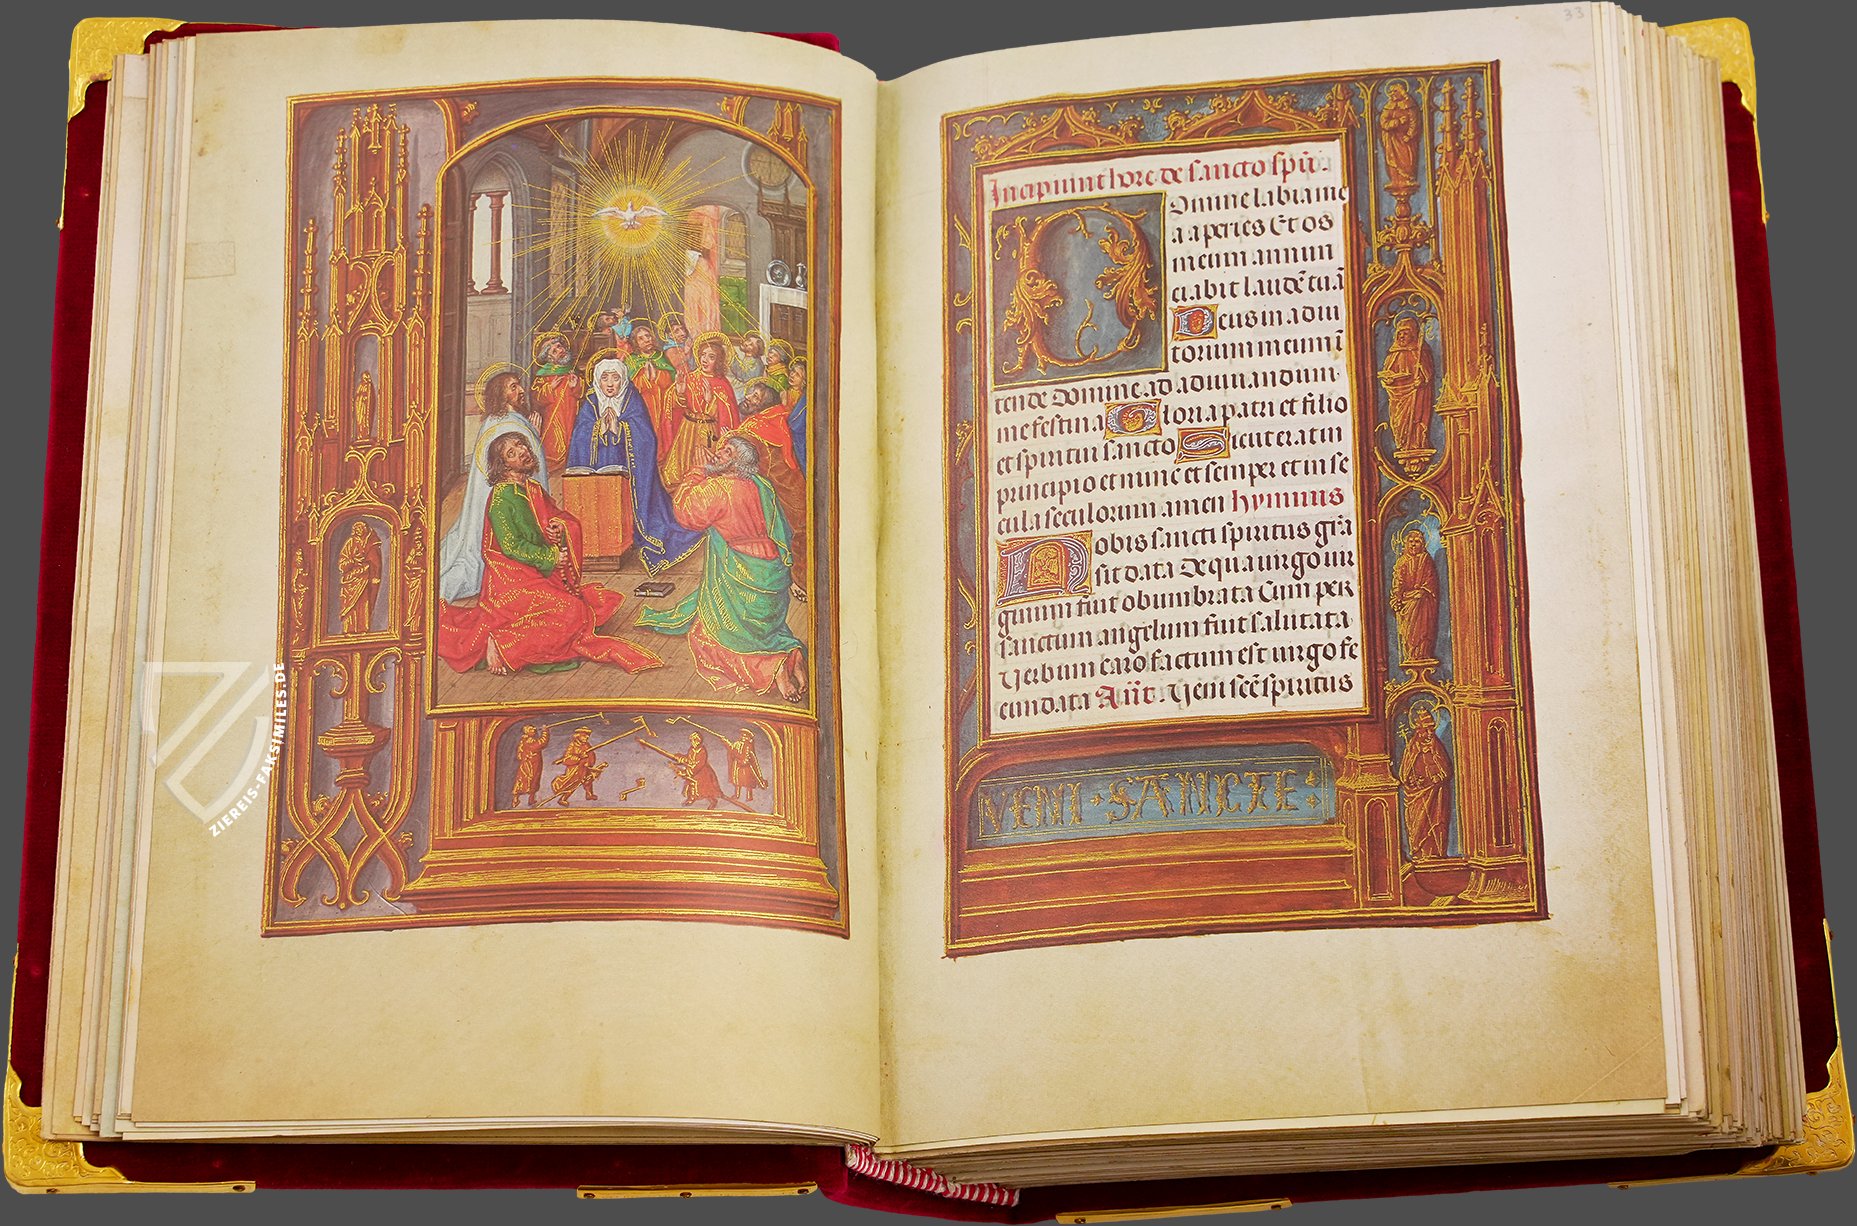 33
Incipiunt hore de sancto spũ.
Domine labia me
a aperies Et os
meum annun
ciabit laudē tuā
Deus in adiu
torium meum ī
tende Domine ad adiuuandum
me festina Gloria patri et filio
et spiritui sancto Sicut erat in
principio et nunc et semper et in se
cula seculorum amen hymnus
Nobis sancti spiritus grã
sit data De qua uirgo uir
ginum fuit obumbrata Cum per
sanctum angelum fuit salutata
Verbum caro factum est uirgo fe
cundata Añt. Veni scẽ spiritus
VENI · SANCTE
ZIEREIS-FAKSIMILES.DE